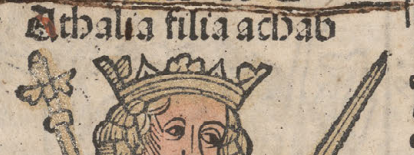 Athalia filia achab